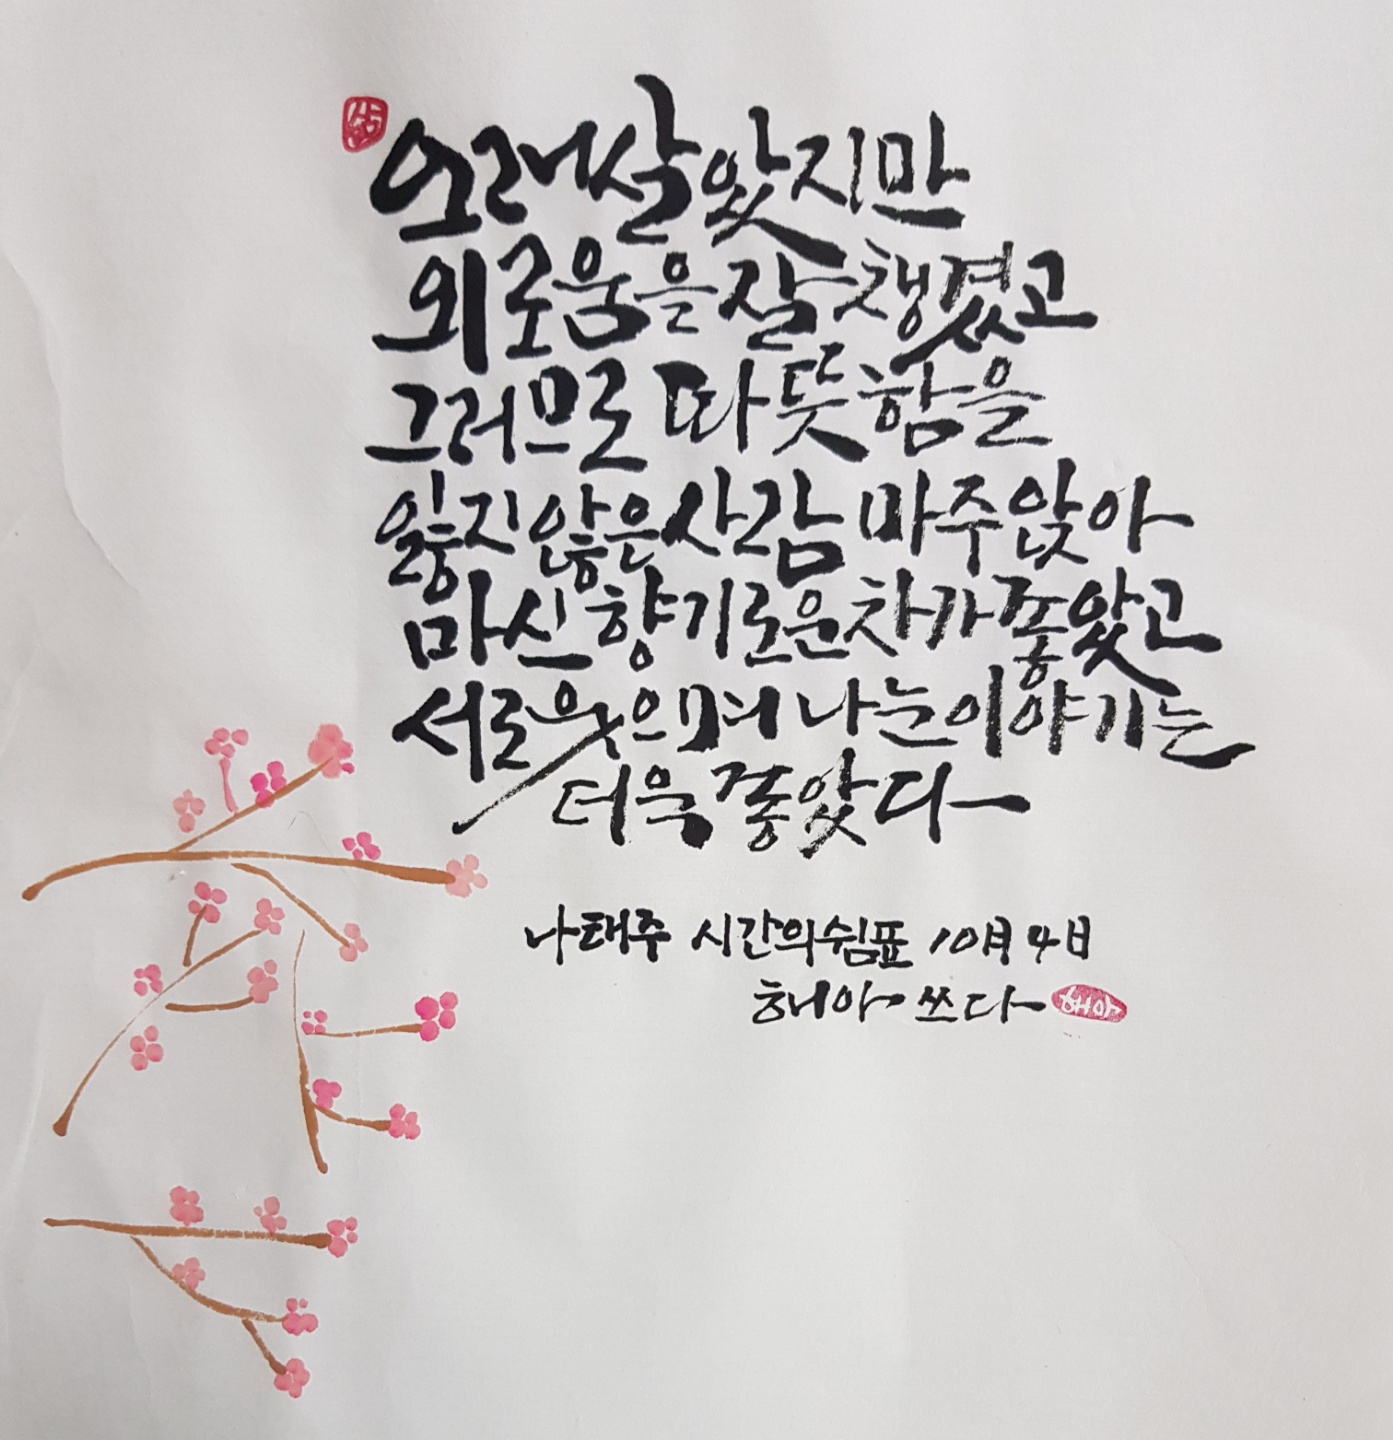 오래 살았지만
외로움을 잘 챙겼고
그러므로 따뜻함을
잃지 않은 사람 마주앉아
마신 향기로운 차가 좋았고
서로 웃으며 나눈 이야기는
더욱 좋았다
나태주 시간의 쉼표 10月 4日
해아 쓰다 해아